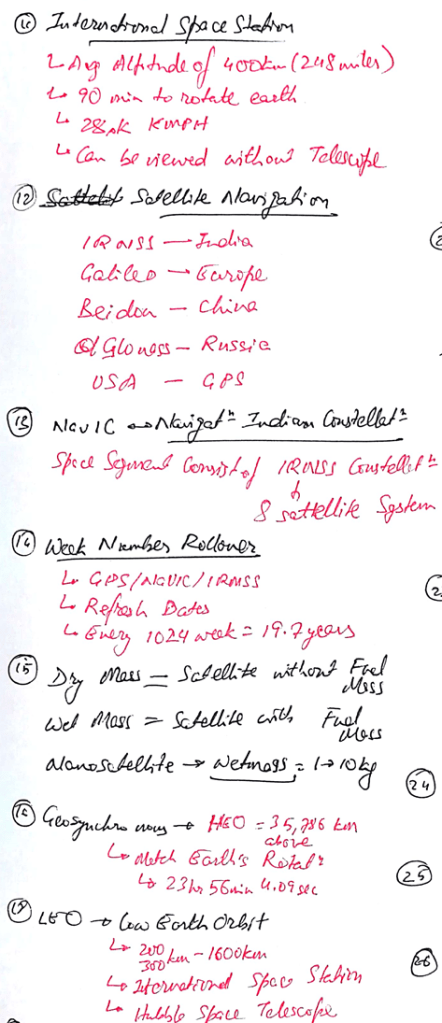 International Space Station
↳ Avg Altitude of 400km (248 miles)
↳ 90 min to rotate earth
↳ 28 KMPH
↳ Can be viewed without Telescope
(12) Satellite Navigation
IRNSS — India
Galileo — Europe
Beidou — China
Glonass — Russia
USA — GPS
(13) NavIC ↔ Navigatⁿ Indian Constellatⁿ
Space Segment Consist of IRNSS Constellatⁿ
↓
8 sattellite System
(14) Week Number Rollover
↳ GPS/NAVIC/IRNSS
↳ Refresh Dates
↳ Every 1024 week = 19.7 years
(15) Dry Mass = Satellite without Fuel
Mass
Wet Mass = Satellite with Fuel
Mass
Nanosatellite → Wetmass = 1→10kg
(24)
(16) Geosynchronous → HEO = 35,786 km
above
↳ Match Earth's Rotatⁿ
↳ 23hr 56min 4.09sec
(25)
LEO → Low Earth Orbit
↳ 200
300 km - 1600km
(26)
↳ International Space Station
↳ Hubble Space Telescope